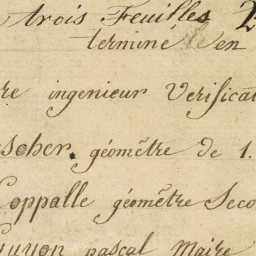 trois Feuilles 2
terminé en
re ingenieur Verificat
scher. géomêtre de 1.
Coppalle géomêtre Seco
Guyon pascal Maire